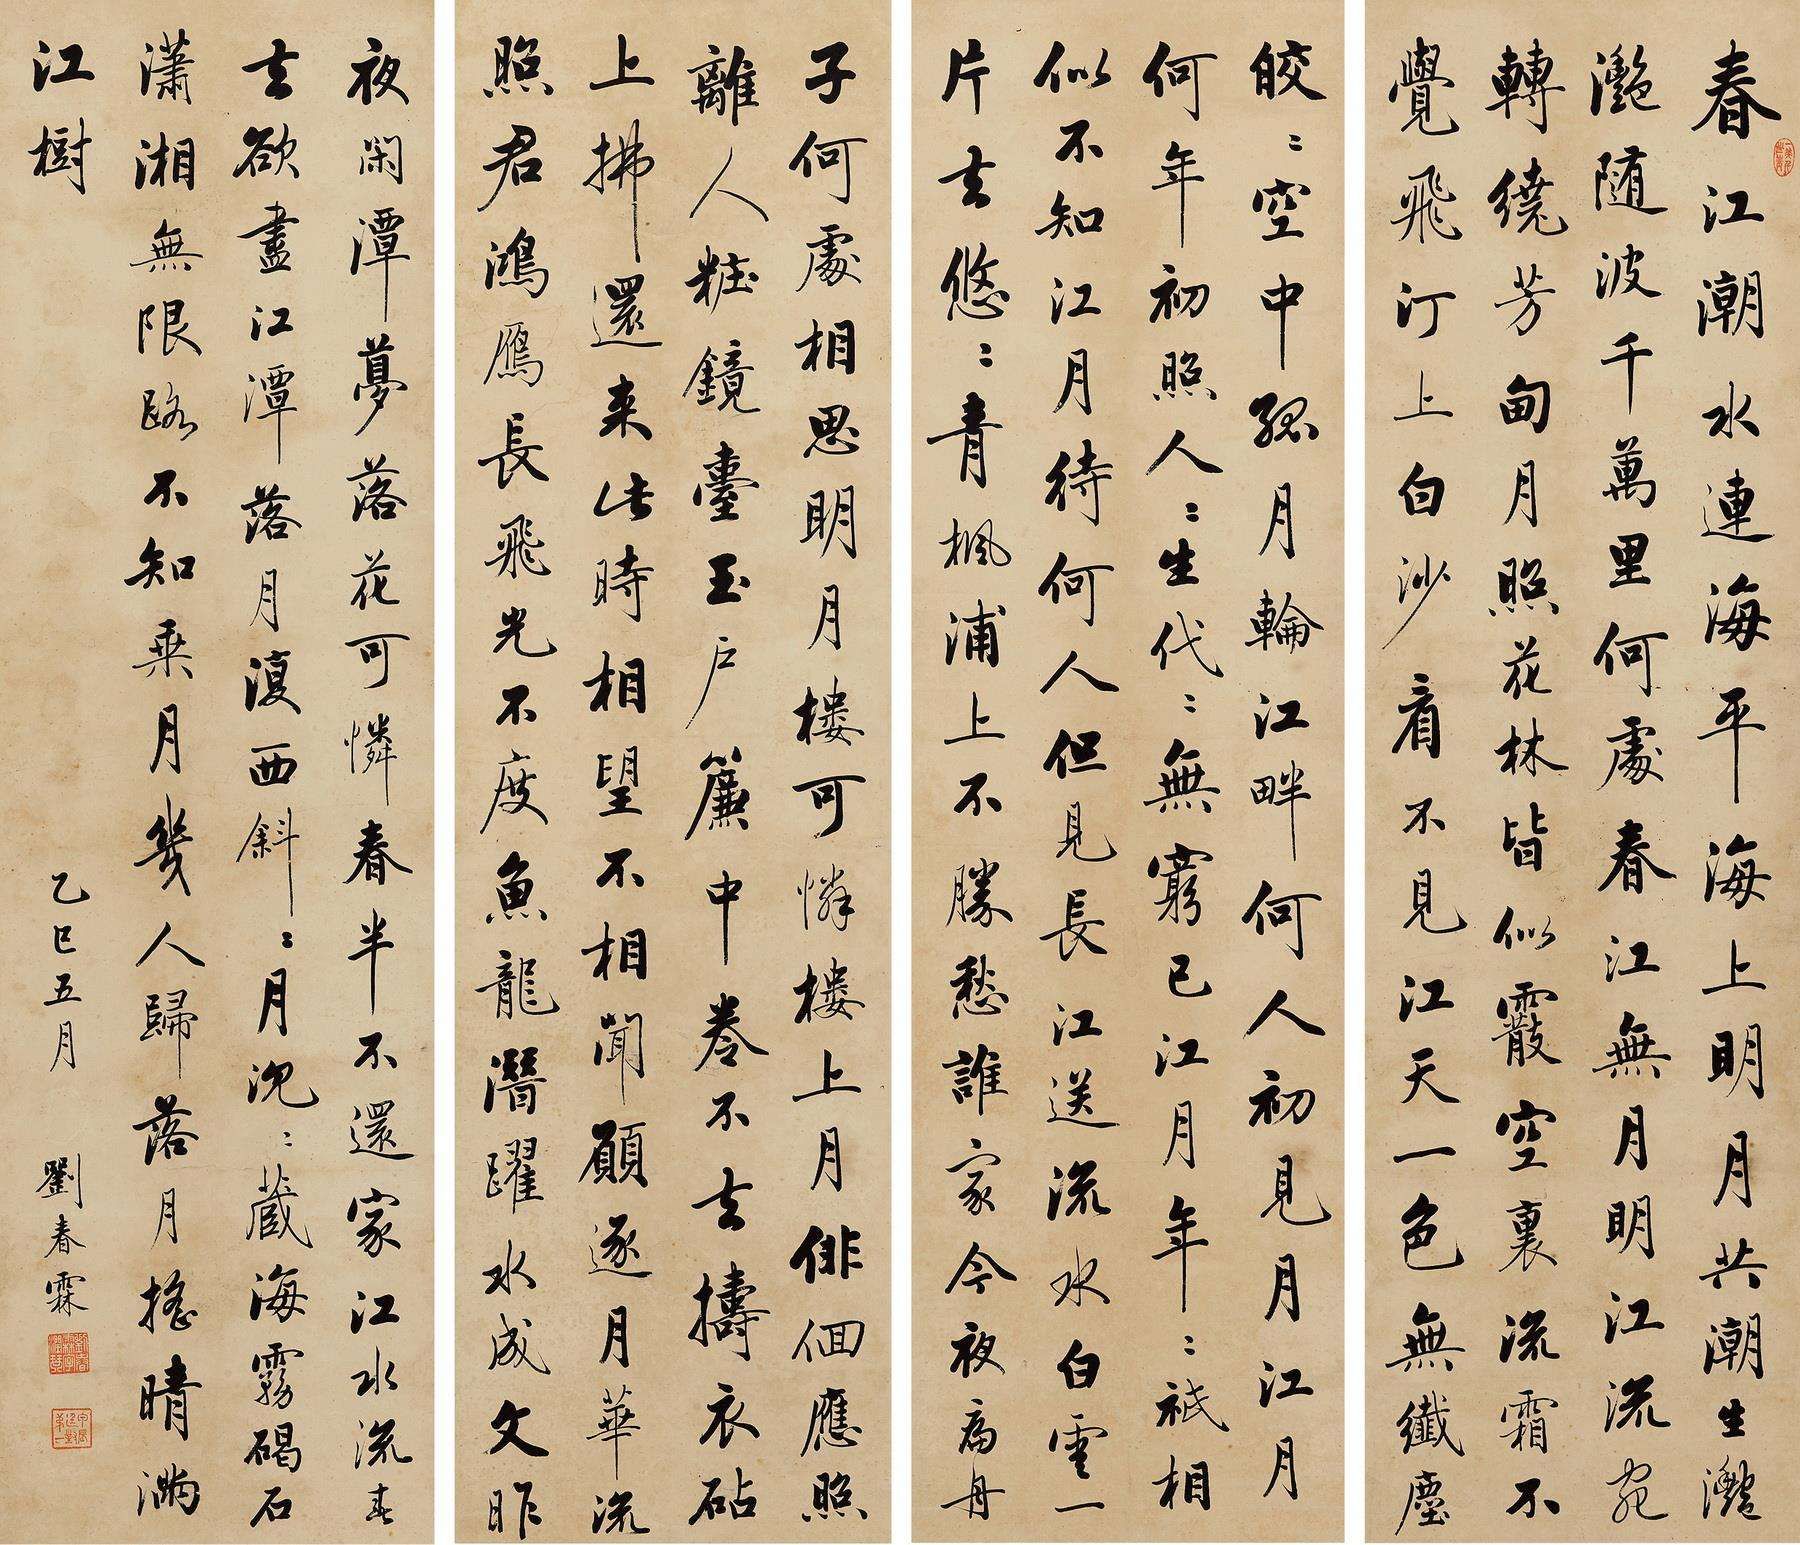 春江潮水連海平海上明月共潮生灩
灩随波千萬里何處春江無月明江流宛
轉繞芳甸月照花林皆似霰空裏流霜不
覺飛汀上白沙看不見江天一色無纖塵
皎〻空中孤月輪江畔何人初見月江月
何年初照人〻生代〻無窮已江月年〻祇相
似不知江月待何人但見長江送流水白雲一
片去悠〻青楓浦上不勝愁誰家今夜扁舟
子何處相思明月樓可憐樓上月俳佪應照
離人粧鏡臺玉户簾中卷不去擣衣砧
上拂還来此時相望不相聞願逐月華流
照君鴻鴈長飛光不度魚龍潛躍水成文昨
夜閑潭夢落花可憐春半不還家江水流春
去欲盡江潭落月復西斜〻月沈〻藏海霧碣石
瀟湘無限路不知乗月幾人歸落月搖晴滿
江樹
乙巳五月 劉春霖